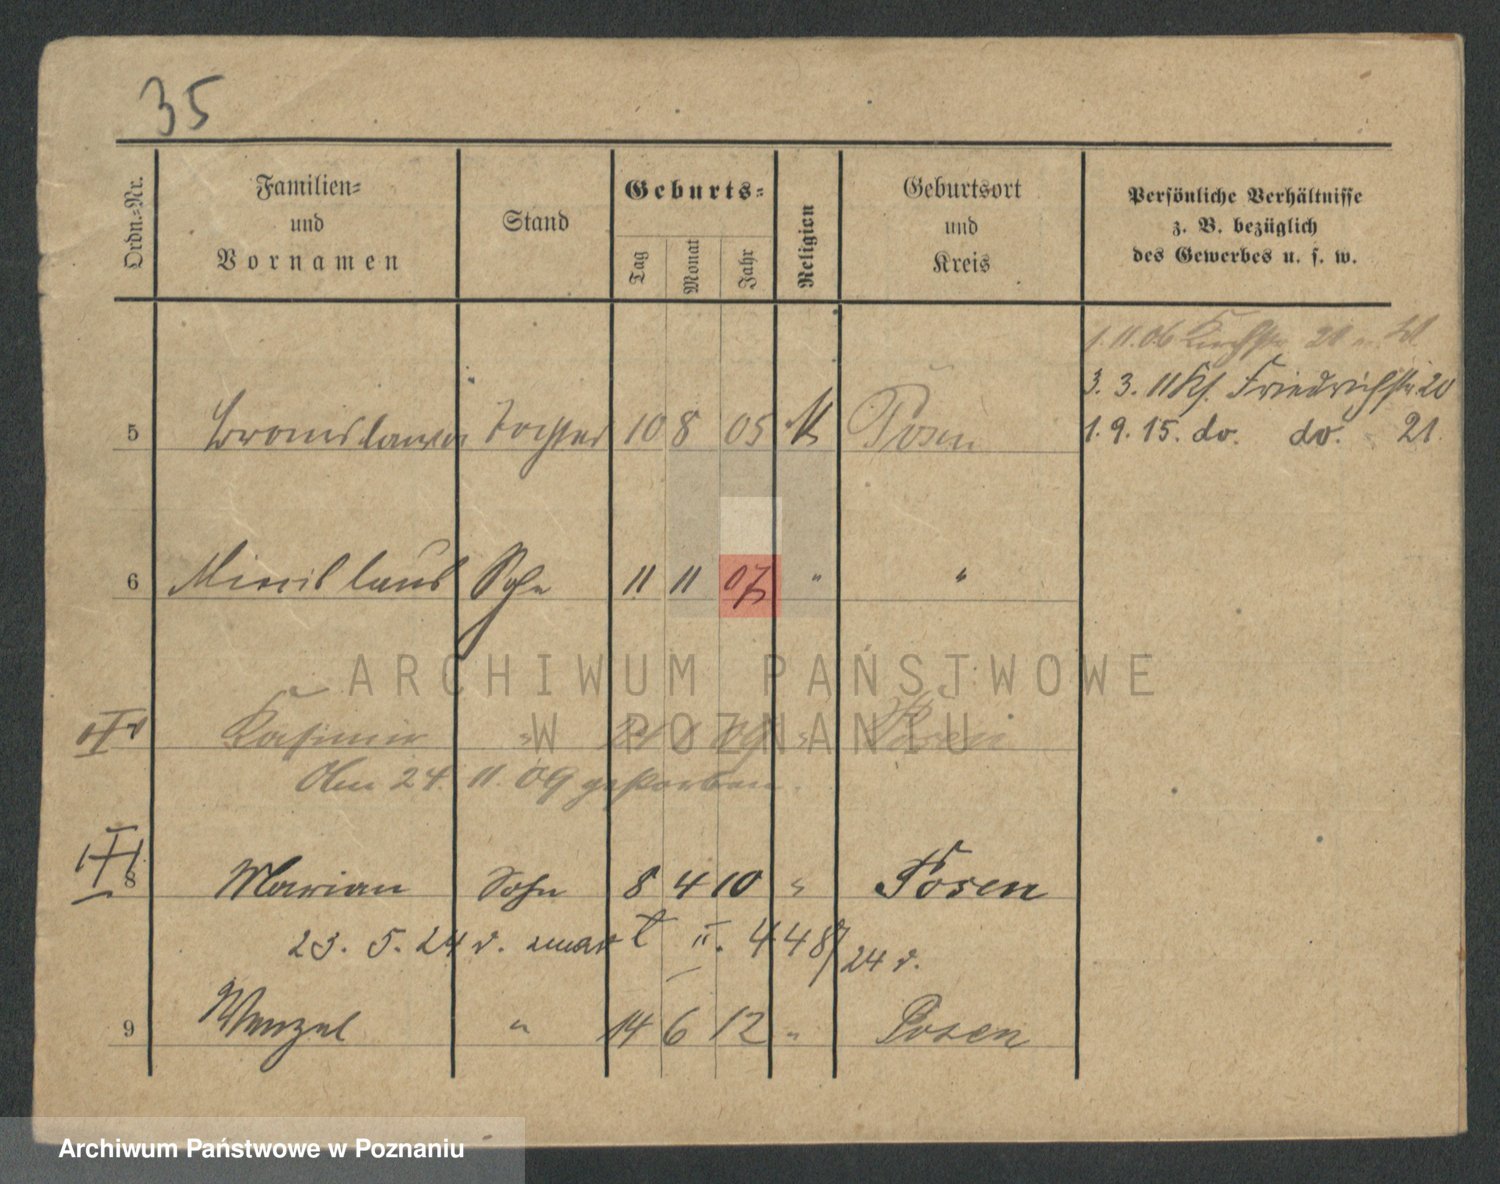 35
Ordn.=Nr.
Familien=
und
Vornamen
Stand
Geburts=
Tag
Monat
Jahr
Religien
Geburtsort
und
Kreis
Persönliche Verhältnisse
z. B. bezüglich
des Gewerbes u. s. w.
1.11.06 20
3. 3. 11 Friedrichstr. 20
1. 9. 15. do. do. 21
5 Bronislawa Tochter 10 8 05 K Posen
6 Miecislaus Sohn 11 11 07 " "
Kasimir " 09 " Posen
Am 24. 11. 09 gestorben.
8 Marian Sohn 8 4 10 " Posen
23. 5. 24 v. II. 448/24 v.
9 Wenzel " 14 6 12 " Posen
ARCHIWUM PAŃSTWOWE
W POZNANIU
Archiwum Państwowe w Poznaniu